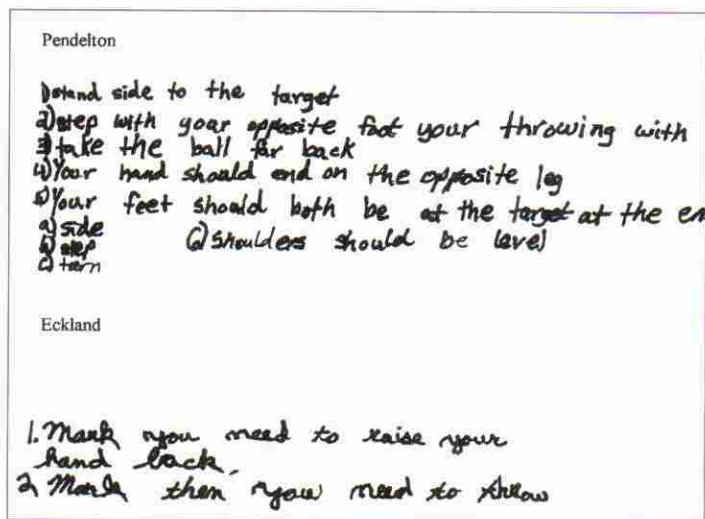 Pendelton
1) stand side to the target
2) step with your opposite foot your throwing with
3) take the ball far back
4) Your hand should end on the opposite leg
5) Your feet should both be at the target at the en
a) side 6) shoulders should be level
b) step
c) turn
Eckland
1. Mark you need to raise your
hand back.
2. Mark then you need to throw